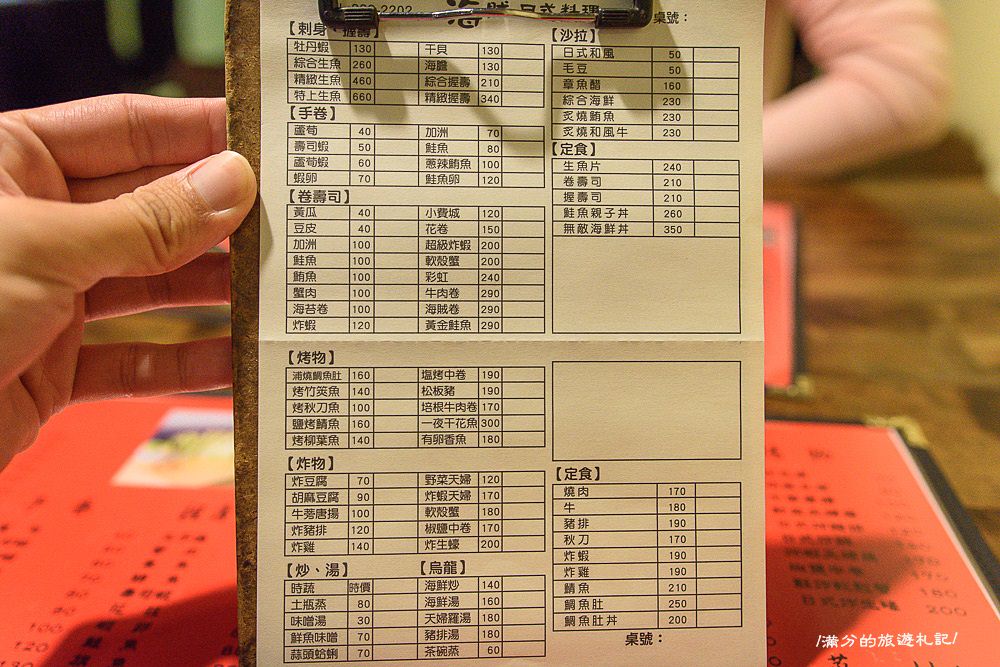 2202
日式料理
桌號：
【刺身、握壽】
牡丹蝦 130 干貝 130
綜合生魚 260 海膽 130
精緻生魚 460 綜合握壽 210
特上生魚 660 精緻握壽 340
【手卷】
蘆荀 40 加洲 70
壽司蝦 50 鮭魚 80
蘆荀蝦 60 蔥辣鮪魚 100
蝦卵 70 鮭魚卵 120
【卷壽司】
黃瓜 40 小費城 120
豆皮 40 花卷 150
加洲 100 超級炸蝦 200
鮭魚 100 軟殼蟹 200
鮪魚 100 彩虹 240
蟹肉 100 牛肉卷 290
海苔卷 100 海賊卷 290
炸蝦 120 黃金鮭魚 290
【烤物】
浦燒鯛魚肚 160 塩烤中卷 190
烤竹筴魚 140 松板豬 190
烤秋刀魚 100 培根牛肉卷 170
鹽烤鯖魚 160 一夜干花魚 300
烤柳葉魚 140 有卵香魚 180
【炸物】
炸豆腐 70 野菜天婦 120
胡麻豆腐 90 炸蝦天婦 170
牛蒡唐揚 100 軟殼蟹 180
炸豬排 120 椒鹽中卷 170
炸雞 140 炸生蠔 200
【炒、湯】 【烏龍】
時蔬 時價 海鮮炒 140
土瓶蒸 80 海鮮湯 160
味噌湯 30 天婦羅湯 180
鮮魚味噌 70 豬排湯 180
蒜頭蛤蜊 70 茶碗蒸 60
【沙拉】
日式和風 50
毛豆 50
章魚醋 160
綜合海鮮 230
炙燒鮪魚 230
炙燒和風牛 230
【定食】
生魚片 240
卷壽司 210
握壽司 210
鮭魚親子丼 260
無敵海鮮丼 350
【定食】
燒肉 170
牛 180
豬排 190
秋刀 170
炸蝦 190
炸雞 190
鯖魚 210
鯛魚肚 250
鯛魚肚丼 200
桌號：
/滿分的旅遊札記/